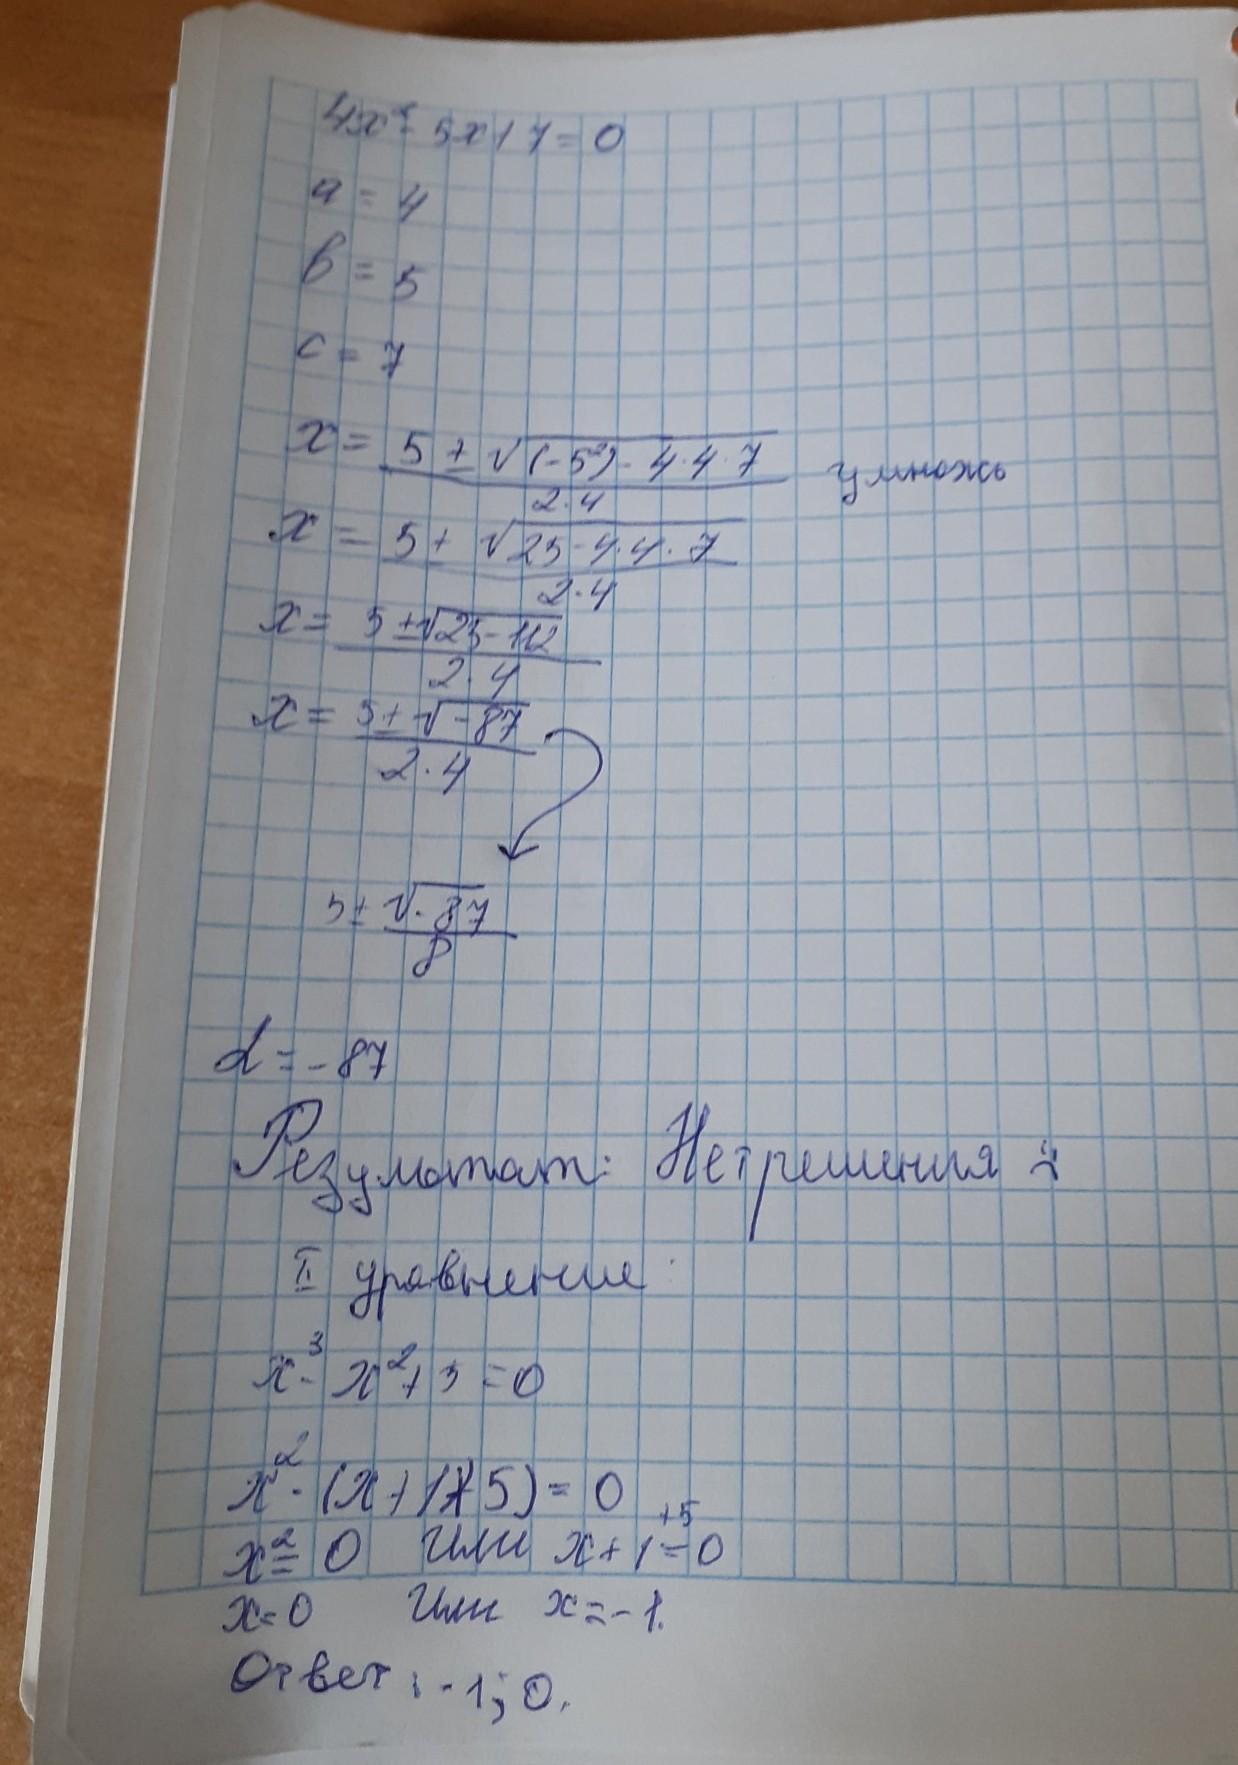 4x² - 5x + 7 = 0
a = 4
b = 5
c = 7
x = 5 ± √(-5²) - 4·4·7 умножь
2·4
x = 5 ± √25 - 4·4·7
2·4
x = 5 ± √25 - 112
2·4
x = 5 ± √-87
2·4
5 ± √-87
8
d = -87
Резултат: Нет решения
II уравнение:
x³ - x² + 5 = 0
x² · (x + 1 + 5) = 0
+5
x² = 0 Или x + 1 = 0
x = 0 Или x = -1.
Ответ: -1; 0.